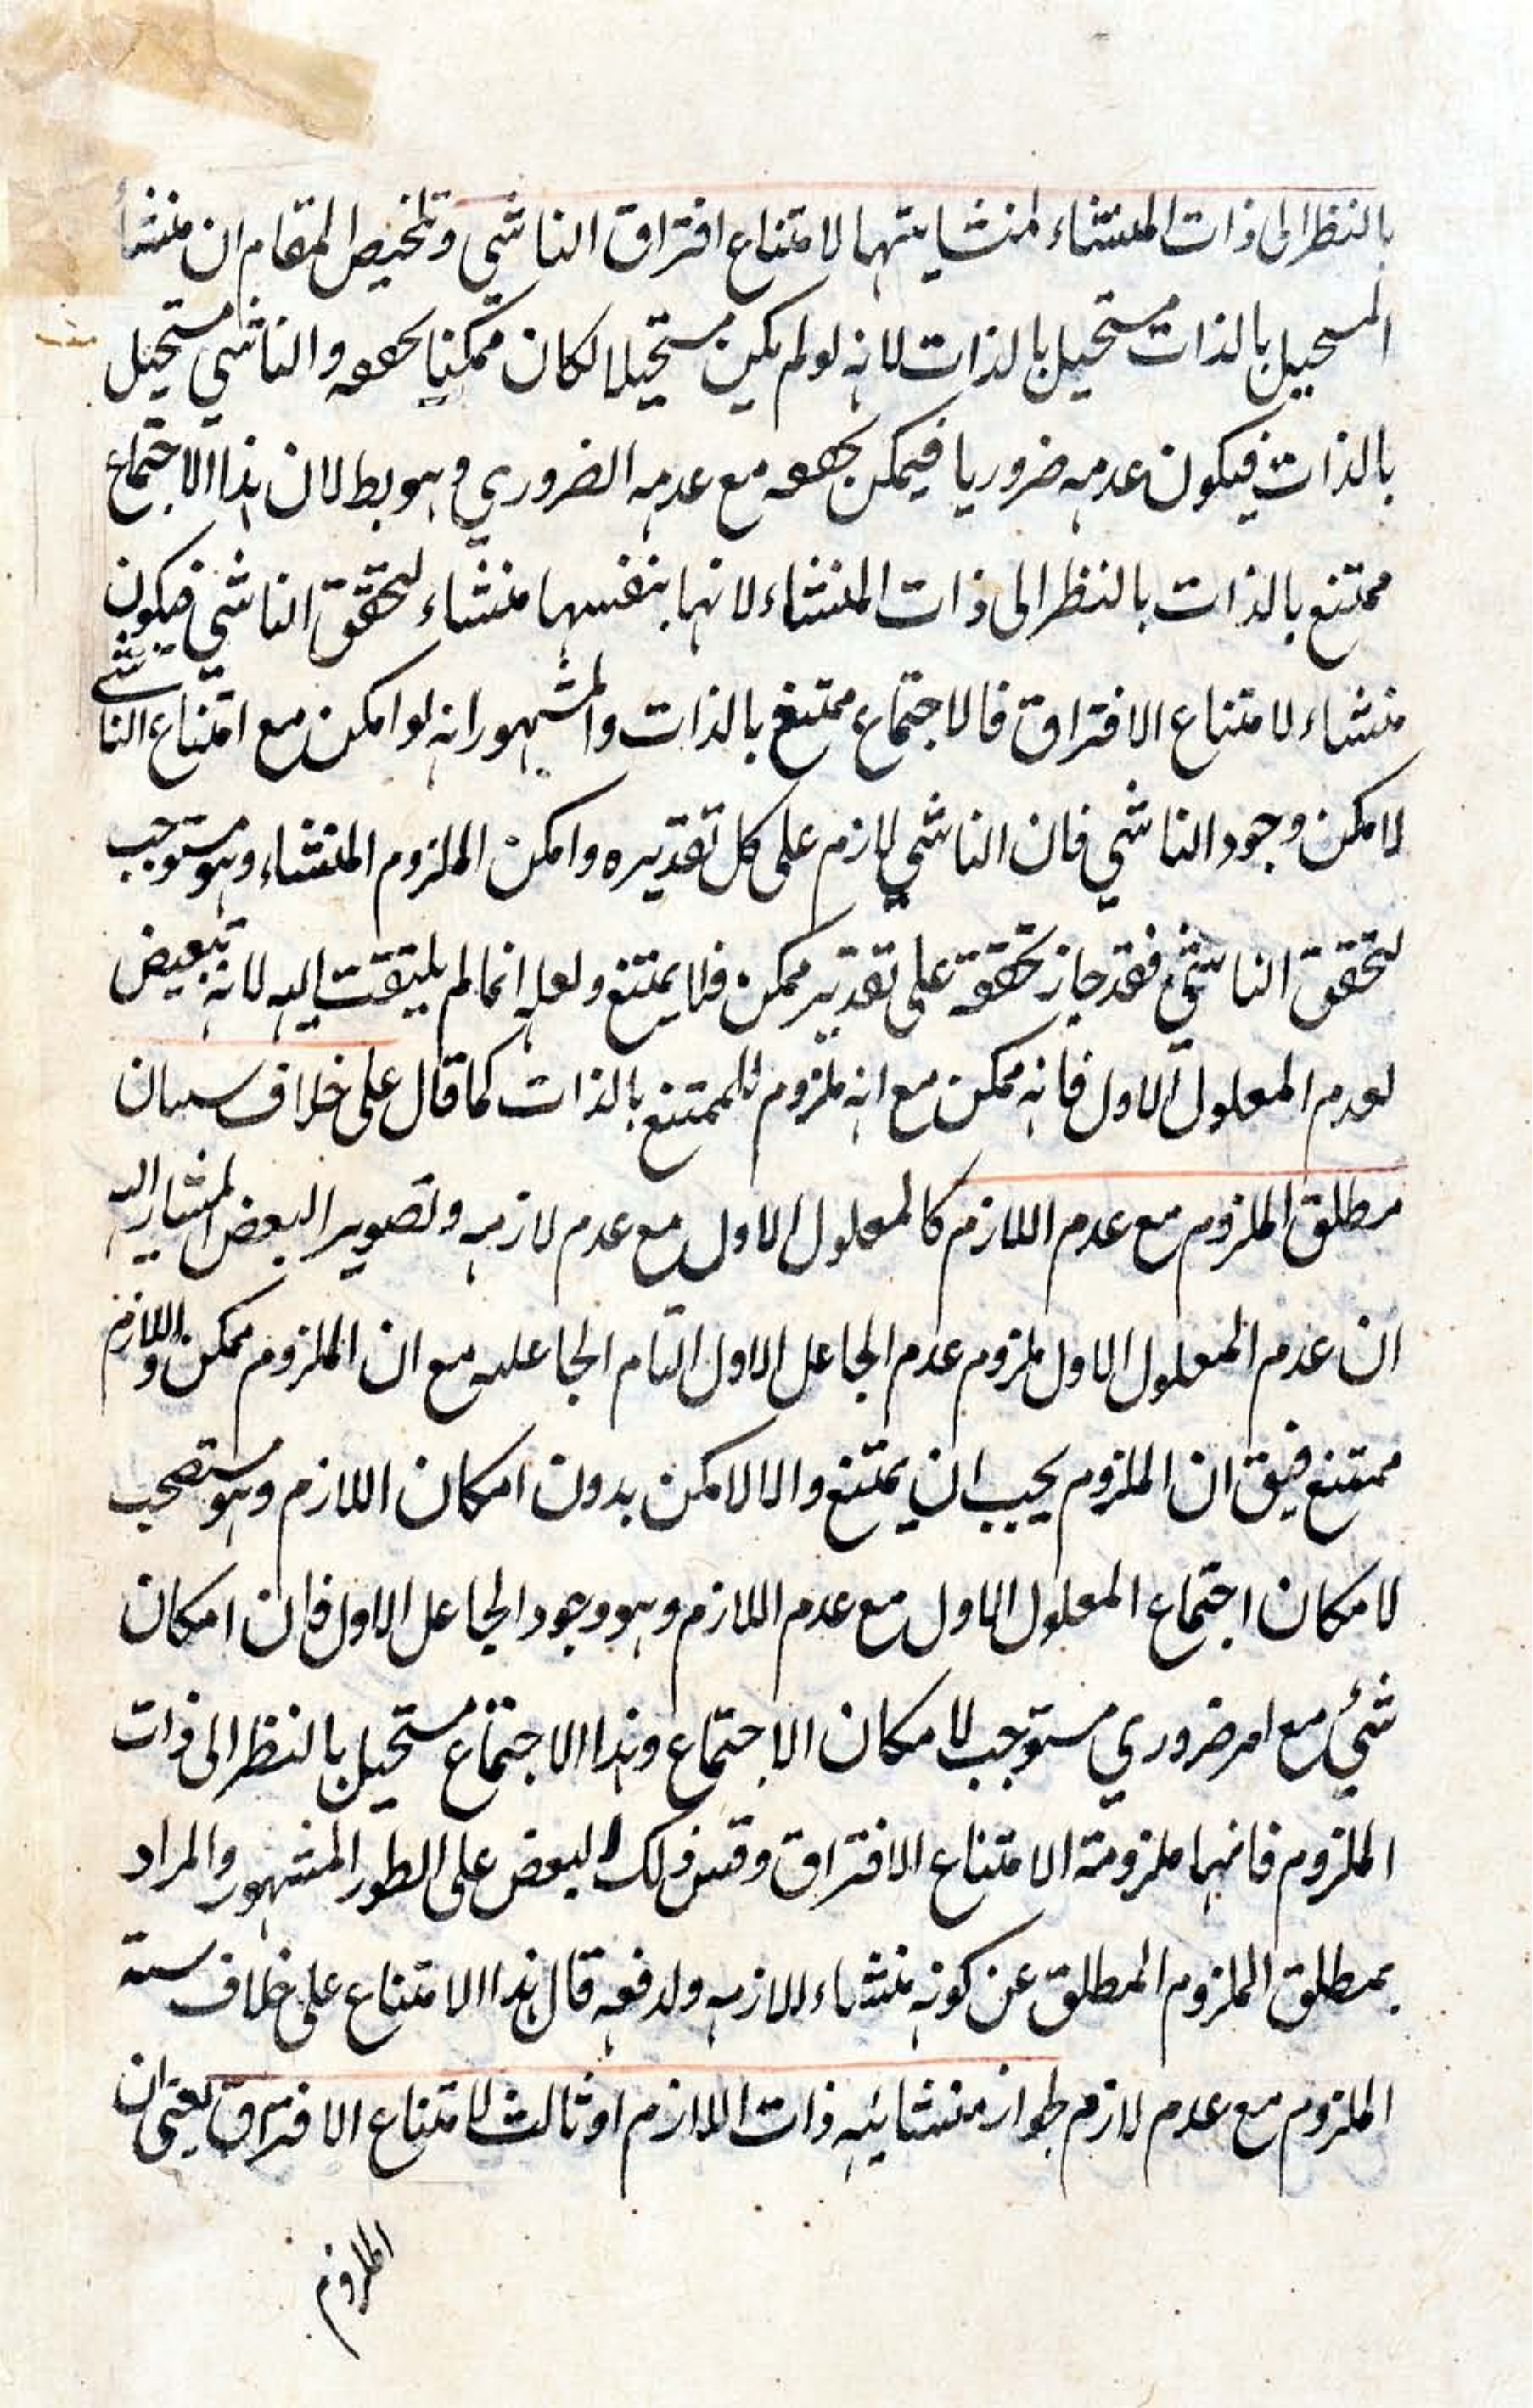 بالنظر الى ذات المنشاء لمنشايتهما لامتناع افتراق الناشي وتلخيص المقام ان منشأ
المستحيل بالذات مستحيل بالذات لانه لو لم يكن مستحيلا لكان ممكنا تحققه والناشي مستحيل
بالذات فيكون عدمه ضروريا فيمكن تحققه مع عدمه الضروري وهو بط لان هذا الاجتماع
ممتنع بالذات بالنظر الى ذات المنشاء لانها بنفسها منشاء لتحقق الناشي فيكون
منشاء لامتناع الافتراق فالاجتماع ممتنع بالذات والمشهور انه لو امكن مع امتناع الناشي
لامكن وجود الناشي فان الناشي لازم على كل تقديره وامكن الملزوم المنشاء وهو مستوجب
لتحقق الناشي فقد جاز تحققه على تقدير ممكن فلا يمتنع ولعله انما لم يلتفت اليه لانه
لعدم المعلول الاول فانه ممكن مع انه ملزوم للممتنع بالذات كما قال على خلاف
مطلق الملزوم مع عدم اللازم كالمعلول الاول مع عدم لازمه وتصوير البعض المشار اليه
ان عدم المعلول الاول ملزوم عدم الجاعل الاول التام الجاعليه مع ان الملزوم ممكن واللازم
ممتنع فيق ان الملزوم يجب ان يمتنع والا لامكن بدون امكان اللازم وهو مستصحب
لامكان اجتماع المعلول الاول مع عدم اللازم وهو وجود الجاعل الاول فان امكان
شئ مع امر ضروري مستوجب لامكان الاجتماع وهذا الاجتماع مستحيل بالنظر الى ذات
الملزوم فانهما ملزومة الامتناع الافتراق وقس ذلك البعض على الطور المشهور والمراد
بمطلق الملزوم المطلق عن كونه منشاء للازمه ولدفعه قال هذا الامتناع على خلاف
الملزوم مع عدم لازم لجواز منشائيه ذات اللازم او ثالث لامتناع الافتراق يعني ان
الملزوم